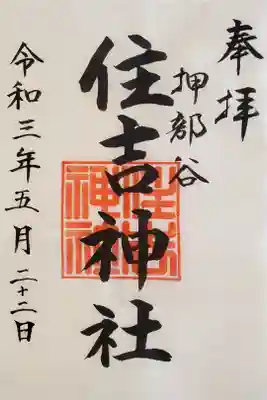 奉拝
押部谷
住吉神社
令和三年五月二十二日